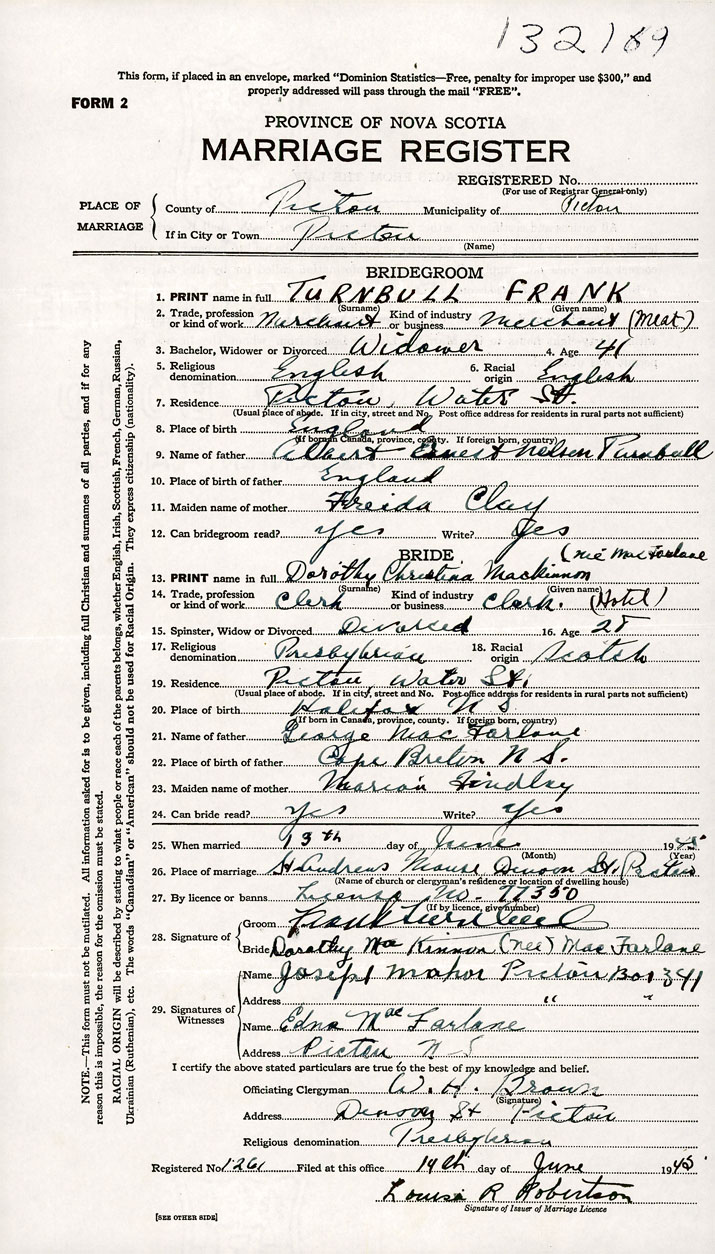 132169
This form, if placed in an envelope, marked "Dominion Statistics—Free, penalty for improper use $300," and
properly addressed will pass through the mail "FREE".
FORM 2
PROVINCE OF NOVA SCOTIA
MARRIAGE REGISTER
REGISTERED No.
(For use of Registrar General only)
PLACE OF MARRIAGE
County of Pictou Municipality of Pictou
If in City or Town Pictou
(Name)
BRIDEGROOM
1. PRINT name in full TURNBULL FRANK
(Surname) (Given name)
2. Trade, profession or kind of work Merchant Kind of industry or business Merchant (Meat)
3. Bachelor, Widower or Divorced Widower 4. Age 41
5. Religious denomination English 6. Racial origin English
7. Residence Pictou, Water St.
(Usual place of abode. If in city, street and No. Post office address for residents in rural parts not sufficient)
8. Place of birth England
(If born in Canada, province, county. If foreign born, country)
9. Name of father Albert Ernest Nelson Turnbull
10. Place of birth of father England
11. Maiden name of mother Freida Clay
12. Can bridegroom read? yes Write? Yes
BRIDE (née MacFarlane
13. PRINT name in full Dorothy Christina Mackinnon
(Surname) (Given name)
14. Trade, profession or kind of work Clerk Kind of industry or business Clerk. (Hotel)
15. Spinster, Widow or Divorced Divorced 16. Age
17. Religious denomination Presbyterian 18. Racial origin Scotch
19. Residence Pictou, Water St.
(Usual place of abode. If in city, street and No. Post office address for residents in rural parts not sufficient)
20. Place of birth Halifax N S
(If born in Canada, province, county. If foreign born, country)
21. Name of father George MacFarlane
22. Place of birth of father Cape Breton N S.
23. Maiden name of mother Marion Findlay
24. Can bride read? yes Write? yes
25. When married 13th day of June 1945
(Month) (Year)
26. Place of marriage St Andrews Manse Denoon St. Pictou
(Name of church or clergyman's residence or location of dwelling house)
27. By licence or banns License No. 77350
(If by licence, give number)
28. Signature of
Groom Frank Turnbull
Bride Dorothy MacKinnon (nee) MacFarlane
29. Signatures of Witnesses
Name Joseph Mahor Pictou Box 341
Address " "
Name Edna MacFarlane
Address Pictou N S
I certify the above stated particulars are true to the best of my knowledge and belief.
Officiating Clergyman W. H. Brown
(Signature)
Address Denoon St Pictou
Religious denomination Presbyterian
Registered No. 1261 Filed at this office 14th day of June 1945
Louise R Robertson
Signature of Issuer of Marriage Licence
[SEE OTHER SIDE]
NOTE.—This form must not be mutilated. All information asked for is to be given, including full Christian and surnames of all parties, and if for any
reason this is impossible, the reason for the omission must be stated.
RACIAL ORIGIN will be described by stating to what people or race each of the parents belongs, whether English, Irish, Scottish, French, German, Russian,
Ukrainian (Ruthenian), etc. The words "Canadian" or "American" should not be used for Racial Origin. They express citizenship (nationality).